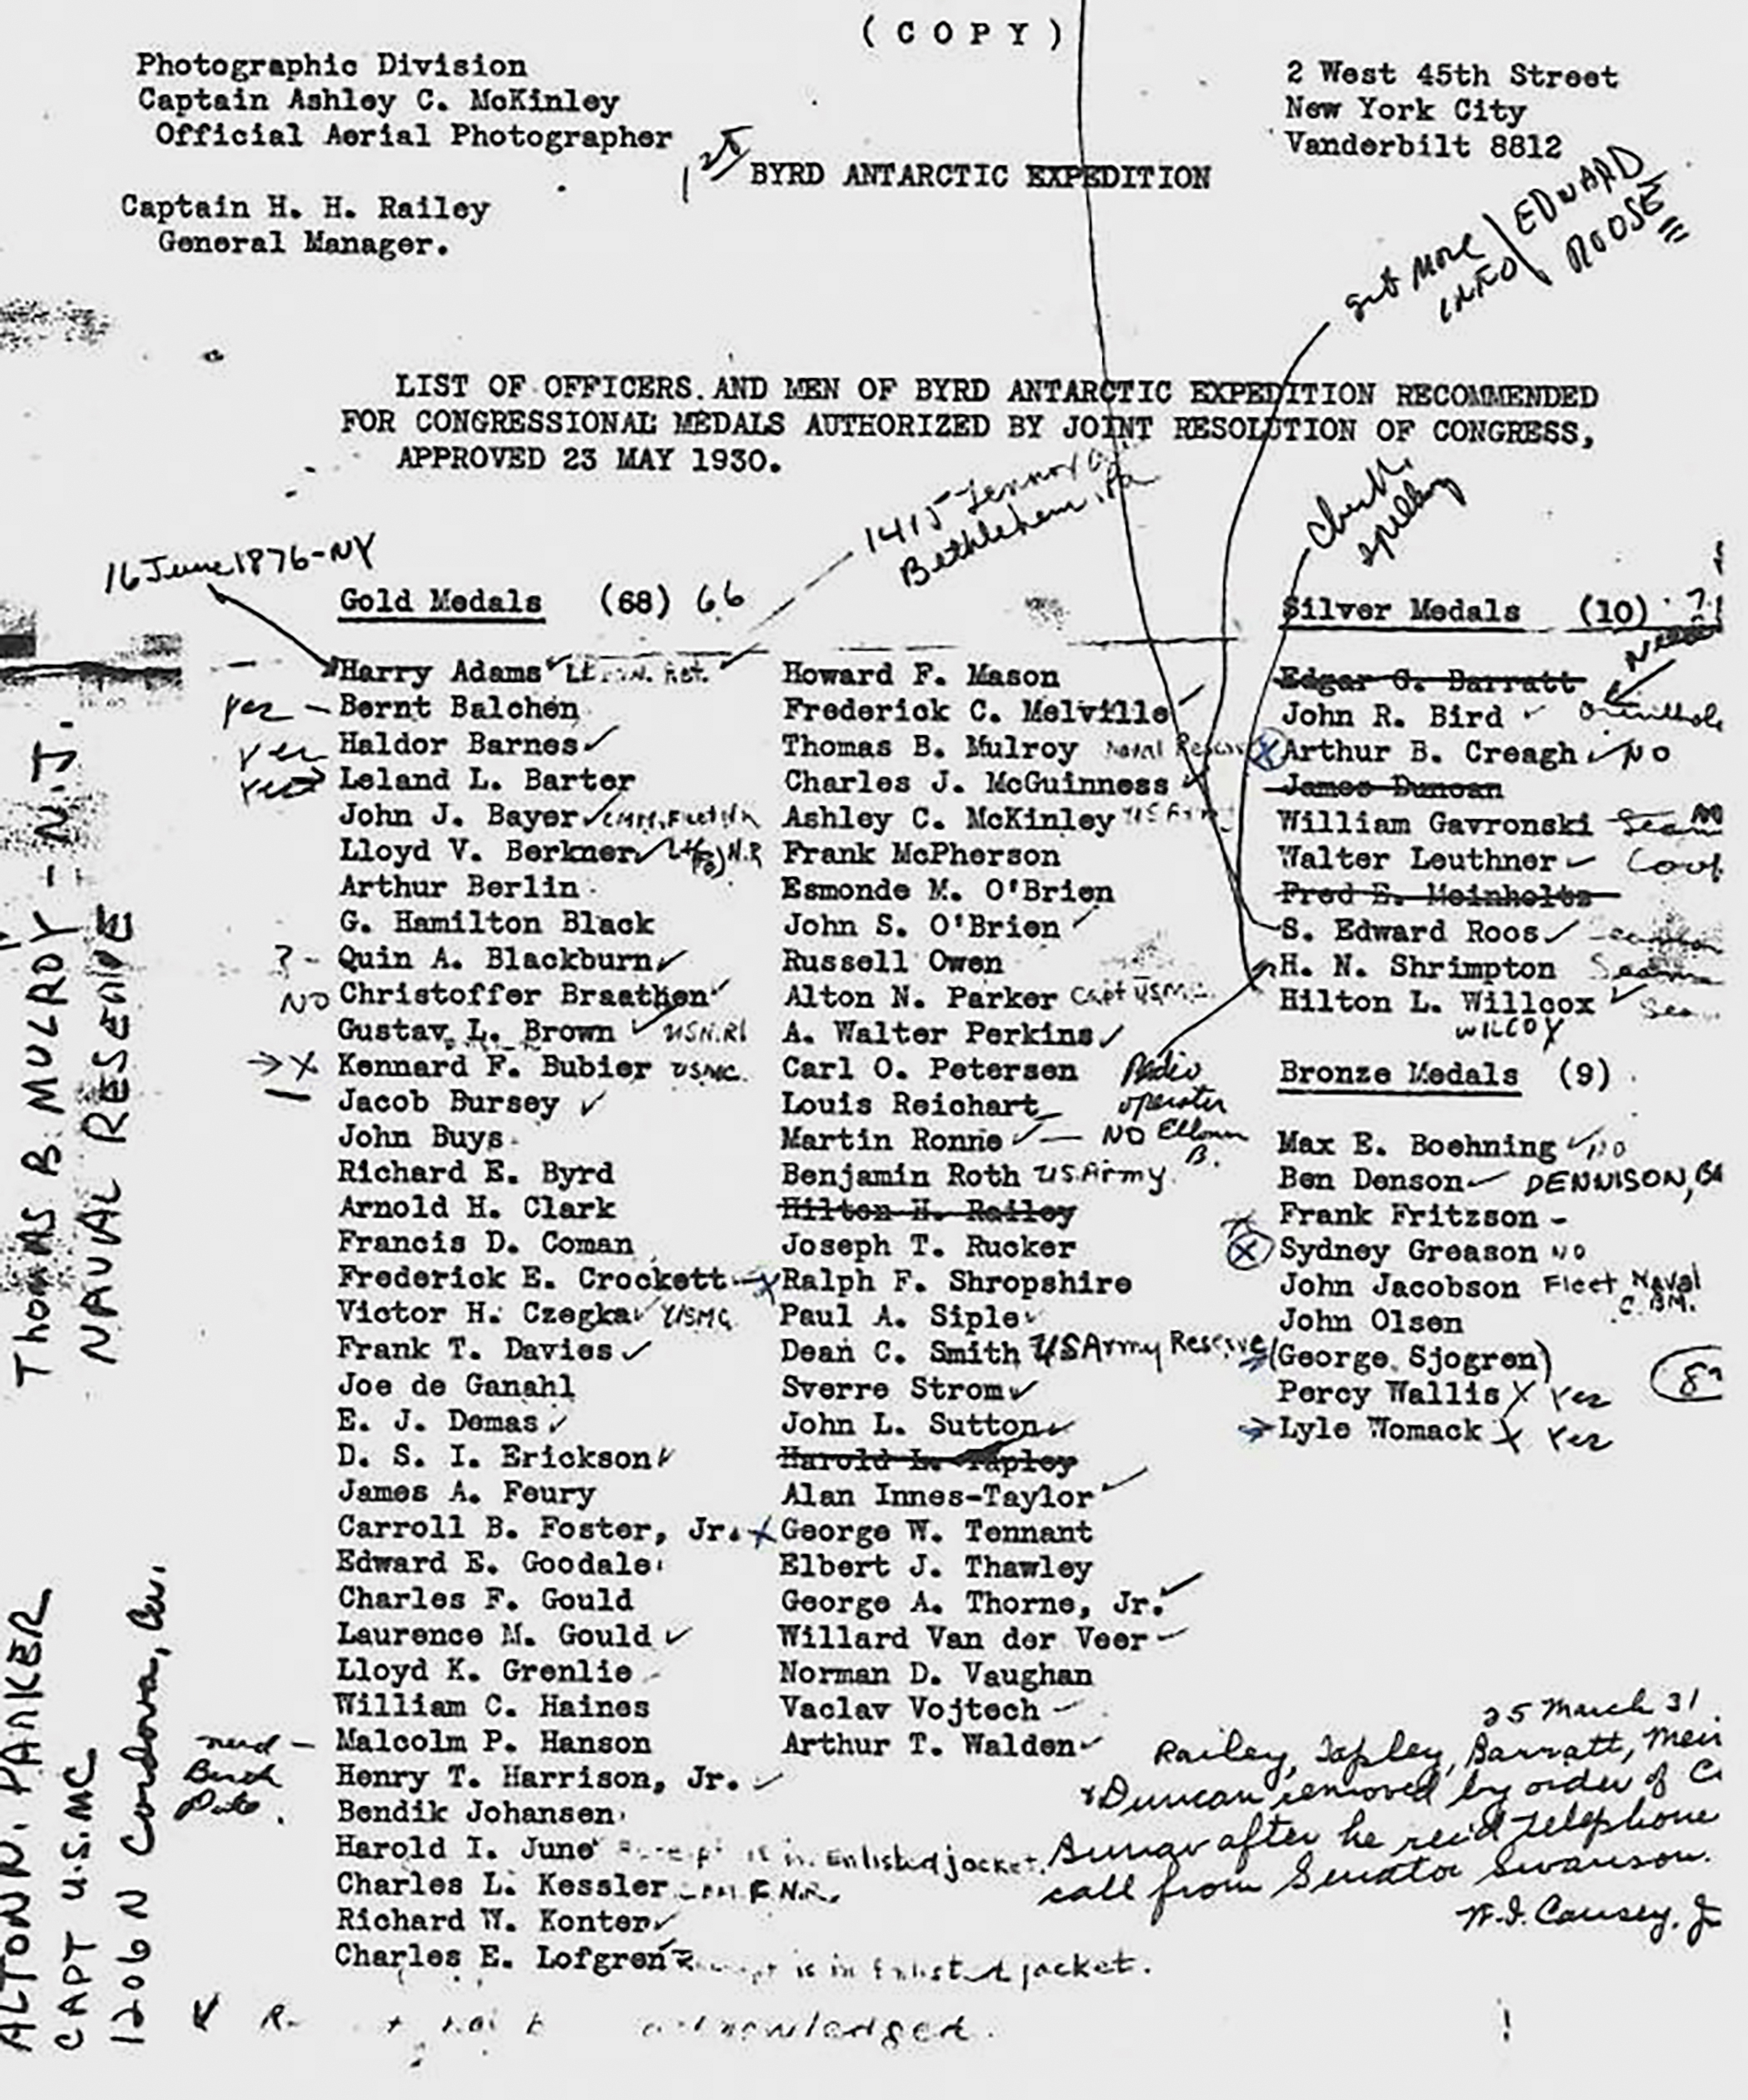 ( C O P Y )
Photographic Division
Captain Ashley C. McKinley
Official Aerial Photographer
Captain H. H. Railey
General Manager.
2 West 45th Street
New York City
Vanderbilt 8812
1st BYRD ANTARCTIC EXPEDITION
get more INFO
EDWARD ROOSE
LIST OF OFFICERS AND MEN OF BYRD ANTARCTIC EXPEDITION RECOMMENDED
FOR CONGRESSIONAL MEDALS AUTHORIZED BY JOINT RESOLUTION OF CONGRESS,
APPROVED 23 MAY 1930.
1415
Bethlehem, Pa
check spelling
16 June 1876-NY
Gold Medals (68) 66
Harry Adams
yes - Bernt Balchen
yes Haldor Barnes
yes Leland L. Barter
John J. Bayer
Lloyd V. Berkner
Arthur Berlin
G. Hamilton Black
? - Quin A. Blackburn
NO Christoffer Braathen
Gustav L. Brown
X Kennard F. Bubier USMC.
Jacob Bursey
John Buys
Richard E. Byrd
Arnold H. Clark
Francis D. Coman
Frederick E. Crockett
Victor H. Czegka USMC
Frank T. Davies
Joe de Ganahl
E. J. Demas
D. S. I. Erickson
James A. Feury
Carroll B. Foster, Jr.
Edward E. Goodale
Charles F. Gould
Laurence M. Gould
Lloyd K. Grenlie
William C. Haines
need Birth Date. - Malcolm P. Hanson
Henry T. Harrison, Jr.
Bendik Johansen
Harold I. June is in Enlisted jacket.
Charles L. Kessler F.N.R.
Richard W. Konter
Charles E. Lofgren is in Enlisted jacket.
Howard F. Mason
Frederick C. Melville
Thomas B. Mulroy Naval
Charles J. McGuinness
Ashley C. McKinley US Army
Frank McPherson
Esmonde M. O'Brien
John S. O'Brien
Russell Owen
Alton N. Parker Capt USMC.
A. Walter Perkins
Carl O. Petersen Radio operator
Louis Reichart
Martin Ronne - NO
Benjamin Roth US Army
Hilton H. Railey
Joseph T. Rucker
X Ralph F. Shropshire
Paul A. Siple
Dean C. Smith US Army Reserve
Sverre Strom
John L. Sutton
Harold L. Tapley
Alan Innes-Taylor
X George W. Tennant
Elbert J. Thawley
George A. Thorne, Jr.
Willard Van der Veer
Norman D. Vaughan
Vaclav Vojtech
Arthur T. Walden
Silver Medals (10)
Edgar G. Barratt
John R. Bird
X Arthur B. Creagh NO
James Duncan
William Gavronski
Walter Leuthner
Fred E. Meinholtz
S. Edward Roos
H. N. Shrimpton
Hilton L. Willcox
WILCOX
Bronze Medals (9)
Max E. Boehning NO
Ben Denson DENNISON,
Frank Fritzson -
X Sydney Greason NO
John Jacobson Fleet Naval
C.BM.
John Olsen
(George Sjogren)
Percy Wallis X Yes
Lyle Womack X Yes
25 March 31.
Railey, Tapley, Barratt,
& Duncan removed by order of
after he rec'd telephone
call from Senator Swanson.
acknowledged.
Thomas B. MULROY - N.J.
NAVAL RESERVE
ALTON N. PARKER
CAPT U.S.MC
1206 N Cordova,